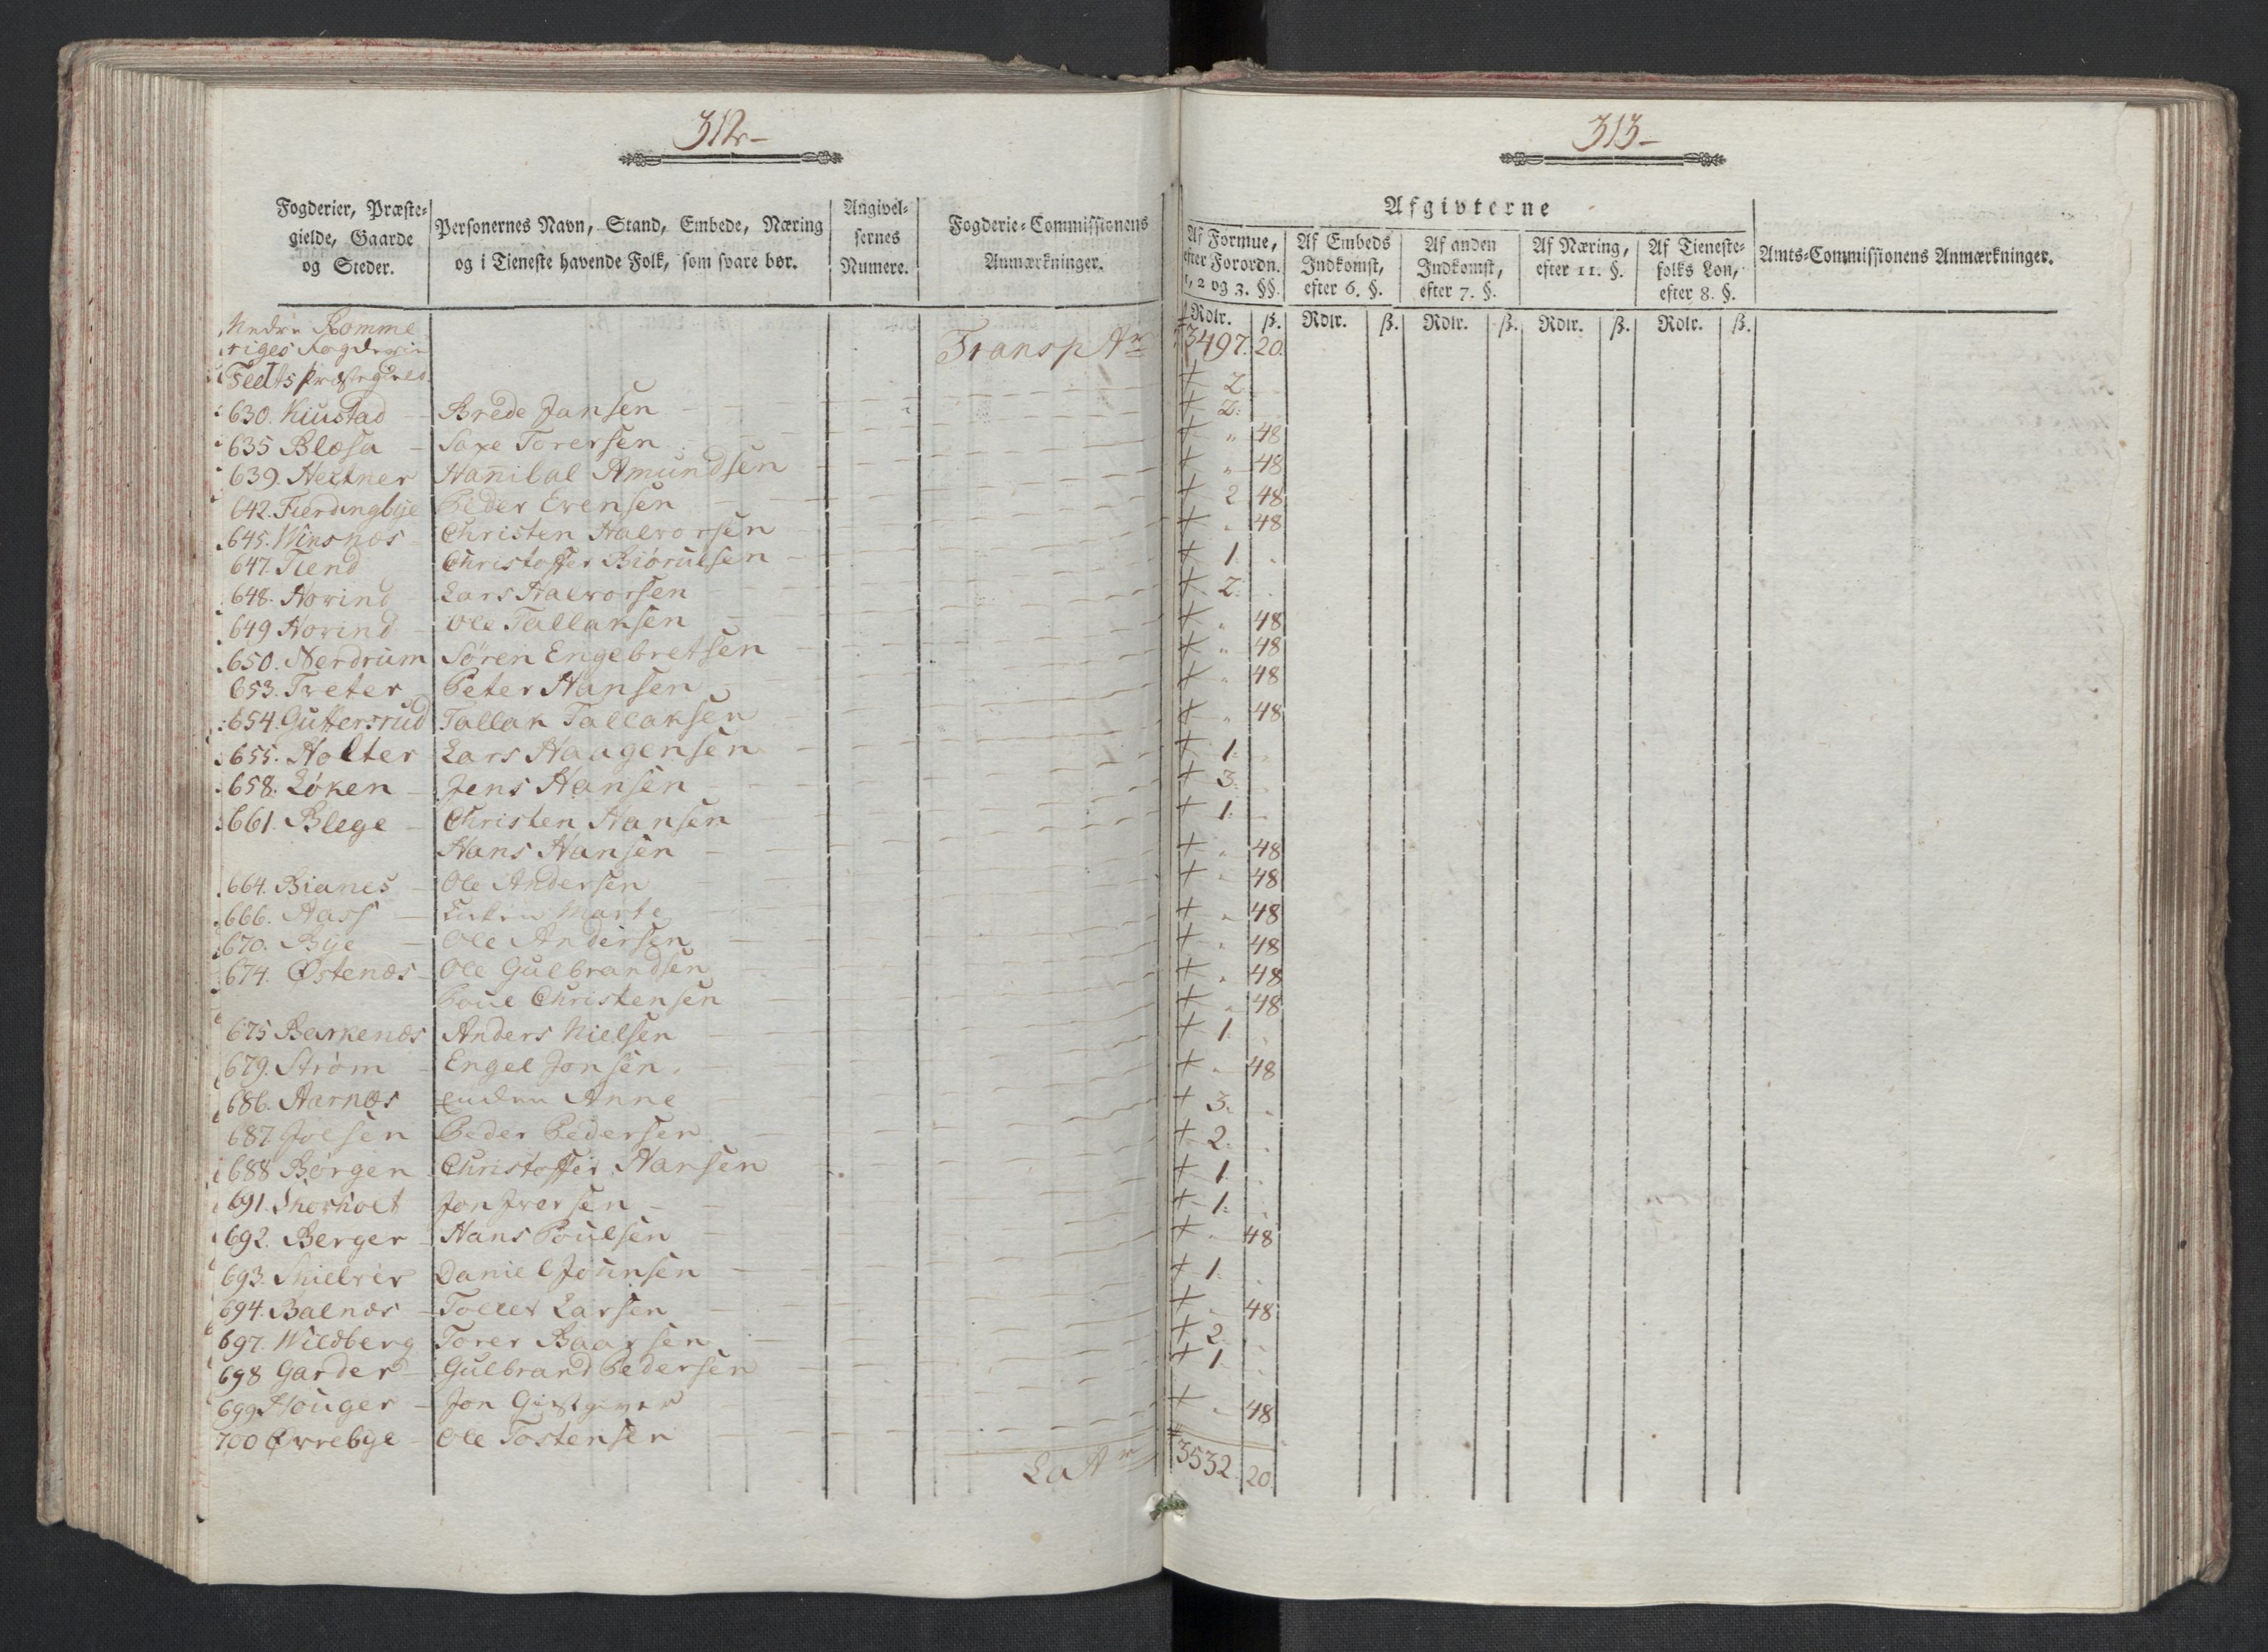 312
Fogderier, Præste-
gielde, Gaarde
og Steder.
Personernes Navn, Stand, Embede, Næring
og i Tieneste havende Folk, som svare bør.
Angivel-
sernes
Numere.
Fogderie-Commissionens
Anmærkninger.
Nedre Romme
riges Fogderie
Transp Ar
Feets Præstegield
630. Kiustad - Brede Jansen
635 Blæsa - Saxe Torersen
639. Hectner Hanibal Amundsen
642. Fierdingbye Peder Evensen
645. Winsnæs - Christen Halvorsen
647. Tiend Christoffer Biørulsen
648. Hovind - Lars Halvorsen
649 Hovind - Ole Tallaksen
650. Nerdrum Søren Engebretsen
653. Treter Peter Hansen
654. Guttersrud Tallak Tallaksen
655. Holter Lars Haagensen
658. Løken - Jens Hansen
661. Blege - Christen Hansen
Hans Hansen
664. Bianes - Ole Andersen
666. Aass - Marte
670. Bye - Ole Andersen
674. Østenæs - Ole Gulbrandsen
Poul Christensen
675 Barkenæs Anders Nielsen
679. Strøm - Engel Jonsen
686. Aarnæs Anne
687. Joesen Peder Pedersen
688 Børgen Christoffer Hansen
691. Skorholt Jon Iversen
692. Berger Hans Poulsen
693. Skielver Daniel Johnsen
694. Balnæs - Tollev Larsen
697. Wildberg Torer Baarsen
698 Garder - Gulbrand Pedersen
699 Houger - Jon Giestgiver
700 Ørrebye - Ole Tostensen
La Ar
313
Afgivterne
Af Formue,
efter Forordn.
1, 2 og 3. §§.
Af Embeds
Indkomst,
efter 6. §.
Af anden
Indkomst,
efter 7. §.
Af Næring,
efter 11. §.
Af Tieneste-
folks Løn,
efter 8. §.
Amts-Commissionens Anmærkninger.
Rdlr. ß. Rdlr. ß. Rdlr. ß. Rdlr. ß. Rdlr. ß.
3497. 20.
+ 2.
+ 2.
+ " 48
+ " 48
+ 2 48
+ " 48
+ 1.
+ 2.
+ " 48
+ " 48
+ " 48
+ " 48
+ 1.
+ 3.
+ 1.
+ " 48
+ " 48
+ " 48
+ " 48
+ " 48
+ " 48
+ 1.
+ " 48
+ 3.
+ 2.
+ 1.
+ 1.
+ " 48
+ 1.
+ " 48
+ 2.
+ 1.
+ " 48
3532. 20.